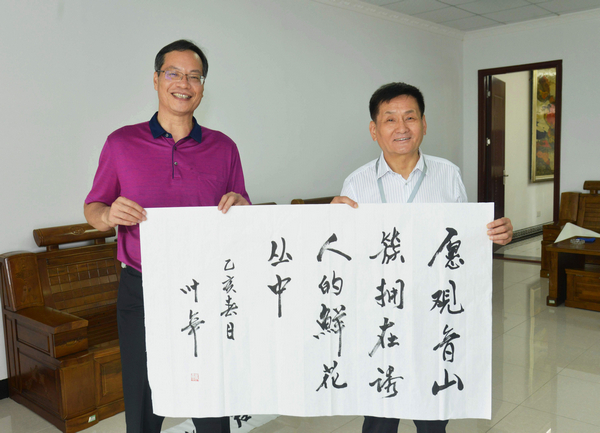 愿观音山
簇拥在诱
人的鲜花
丛中
乙亥春日
叶